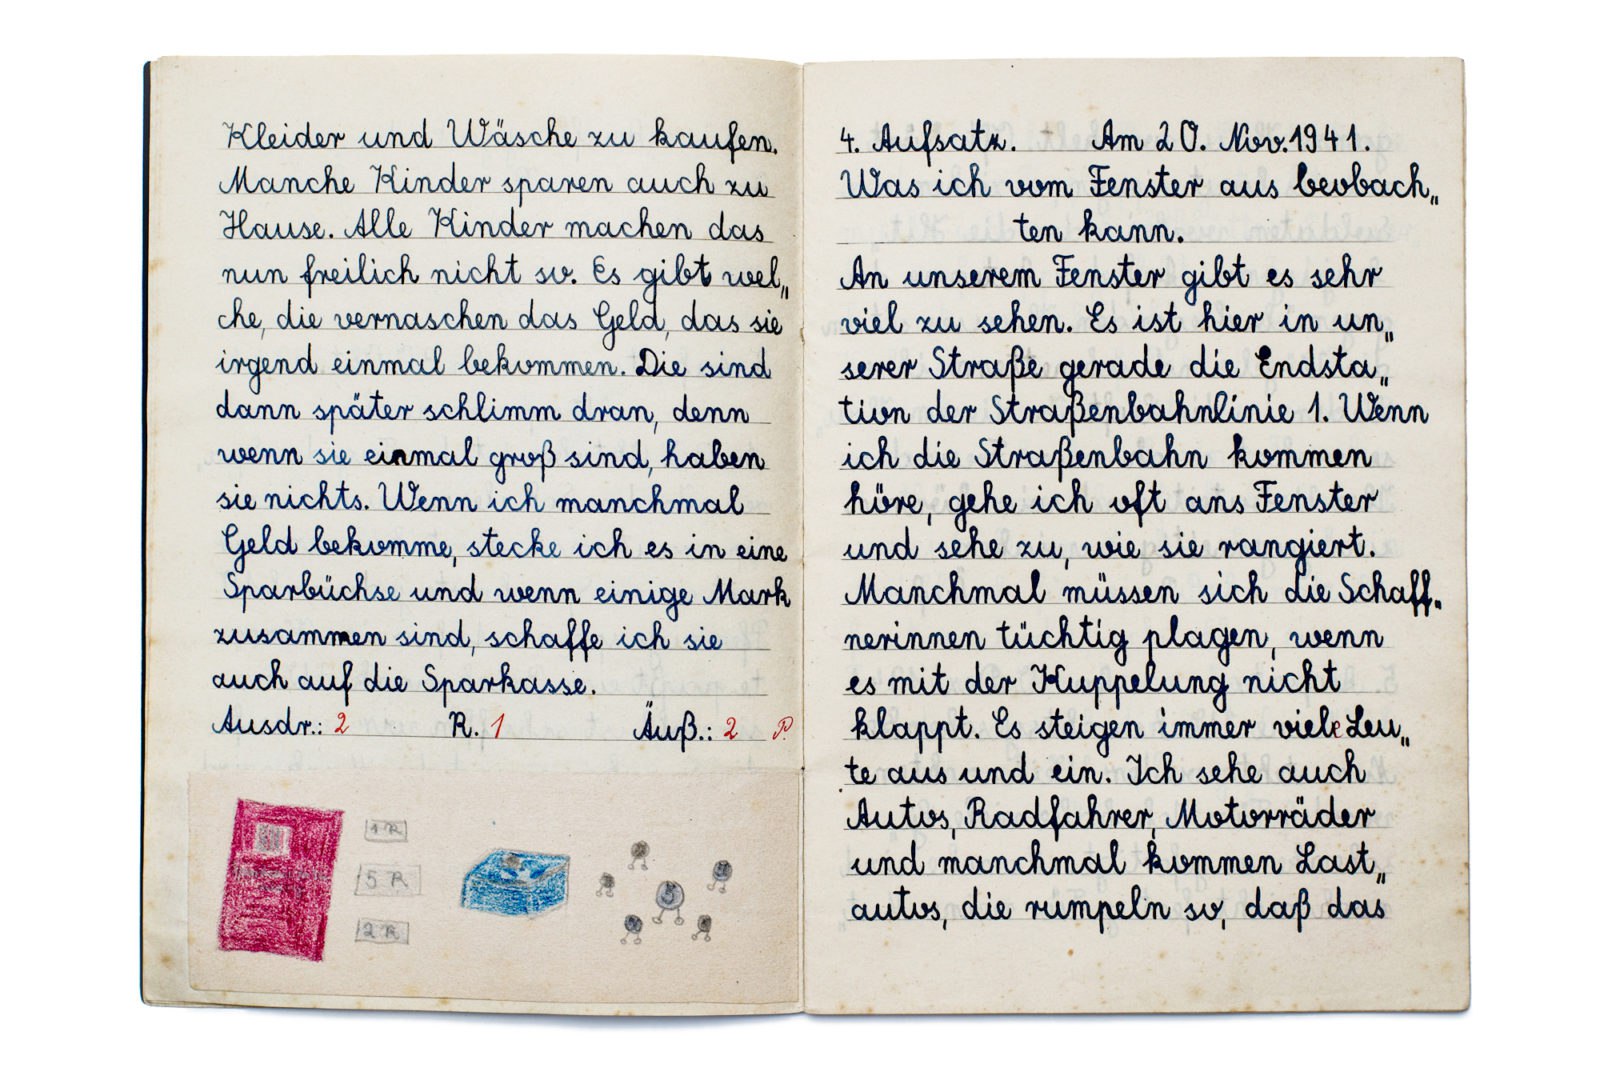 Kleider und Wäsche zu kaufen.
Manche Kinder sparen auch zu
Hause. Alle Kinder machen das
nun freilich nicht so. Es gibt wel„
che, die vernaschen das Geld, das sie
irgend einmal bekommen. Die sind
dann später schlimm dran, denn
wenn sie einmal groß sind, haben
sie nichts. Wenn ich manchmal
Geld bekomme, stecke ich es in eine
Sparbüchse und wenn einige Mark
zusammen sind, schaffe ich sie
auch auf die Sparkasse.
Ausdr.: 2 R. 1 Äuß.: 2 P.
1 R
5 R
2 R
5
4. Aufsatz. Am 20. Nov. 1941.
Was ich vom Fenster aus beobach„
ten kann.
An unserem Fenster gibt es sehr
viel zu sehen. Es ist hier in un„
serer Straße gerade die Endsta„
tion der Straßenbahnlinie 1. Wenn
ich die Straßenbahn kommen
höre, gehe ich oft ans Fenster
und sehe zu, wie sie rangiert.
Manchmal müssen sich die Schaff„
nerinnen tüchtig plagen, wenn
es mit der Kuppelung nicht
klappt. Es steigen immer viele Leu„
te aus und ein. Ich sehe auch
Autos, Radfahrer, Motorräder
und manchmal kommen Last„
autos, die rumpeln so, daß das